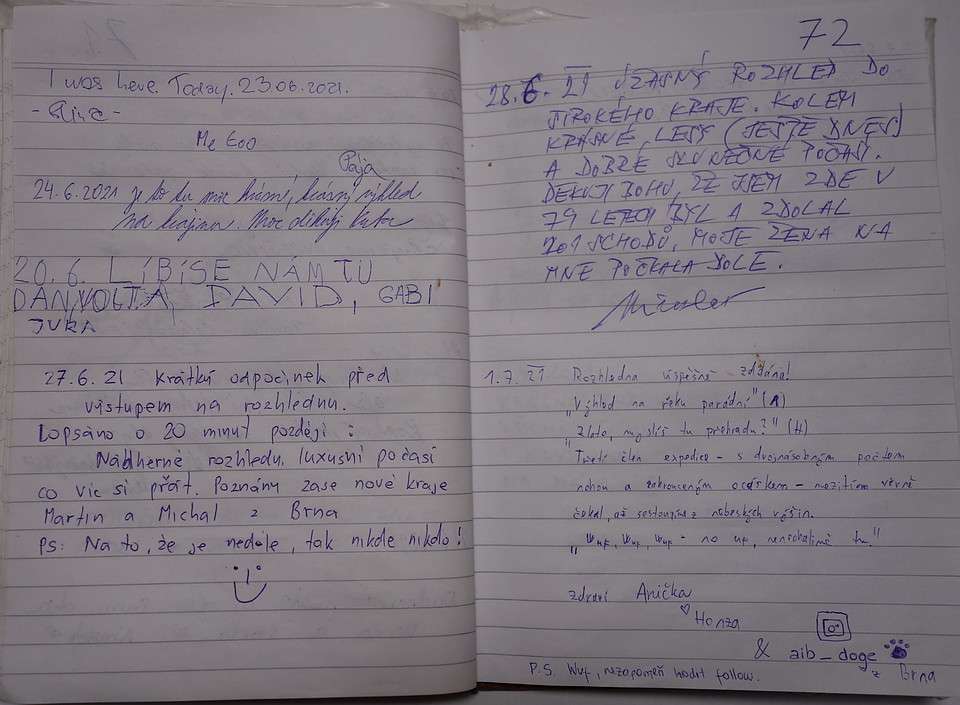 I was here. Today. 23.06.2021.
Me too
Pája
24.6.2021 je to tu moc krásné, krásný výhled
na krajinu. Moc děkuji
20.6. LÍBÍ SE NÁM TU
DAN, DAVID, GABI
JURA
27.6.21 Krátký odpočinek před
výstupem na rozhlednu.
Dopsáno o 20 minut později:
Nádherné rozhledy, luxusní počasí
co víc si přát. Poznány zase nové kraje
Martin a Michal z Brna
PS: Na to, že je neděle, tak nikde nikdo!
72
28.6.21 ÚŽASNÝ ROZHLED DO
ŠIROKÉHO KRAJE. KOLEM
KRÁSNÉ LESY (JEŠTĚ DNES)
A DOBRÉ SLUNEČNÉ POČASÍ.
DĚKUJI BOHU, ŽE JSEM ZDE V
79 LETECH BYL A ZDOLAL
201 SCHODŮ, MOJE ŽENA NA
MNE POČKALA DOLE.
1.7.21 Rozhledna úspěšně zdolána!
„Výhled na řeku parádní" (A)
„Zlato, myslíš tu přehradu?" (H)
Třetí člen expedice - s dvojnásobným počtem
nohou a zakrouceným ocáskem - mezitím věrně
čekal, až sestoupíme z nebeských výšin.
„Wuf, wuf, wuf - no up, nenechalimě tu"
zdraví Anička
Honza
& aib_doge z Brna
P.S. Wuf, nezapomeň hodit follow.